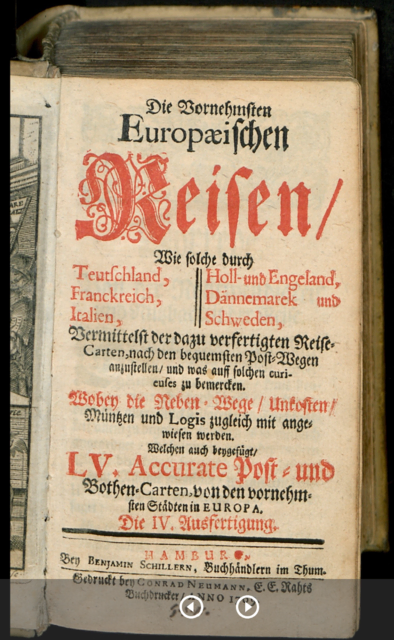 Die Vornehmsten
Europæischen
Reisen/
Wie solche durch
Teutschland, Holl- und Engeland,
Franckreich, Dännemarck und
Italien, Schweden,
Vermittelst der dazu verfertigten Reise-
Carten, nach den bequemsten Post-Wegen
anzustellen/ und was auff solchen curi-
euses zu bemercken.
Wobey die Neben-Wege/ Unkosten/
Müntzen und Logis zugleich mit ange-
wiesen werden.
Welchen auch beygefüget/
LV. Accurate Post- und
Bothen-Carten, von den vornehm-
sten Städten in EUROPA.
Die IV. Ausfertigung.
HAMBURG,
Bey BENJAMIN SCHILLERN, Buchhändlern im Thum.
Gedruckt bey CONRAD NEUMANN, E. E. Rahts
Buchdrucker/ ANNO